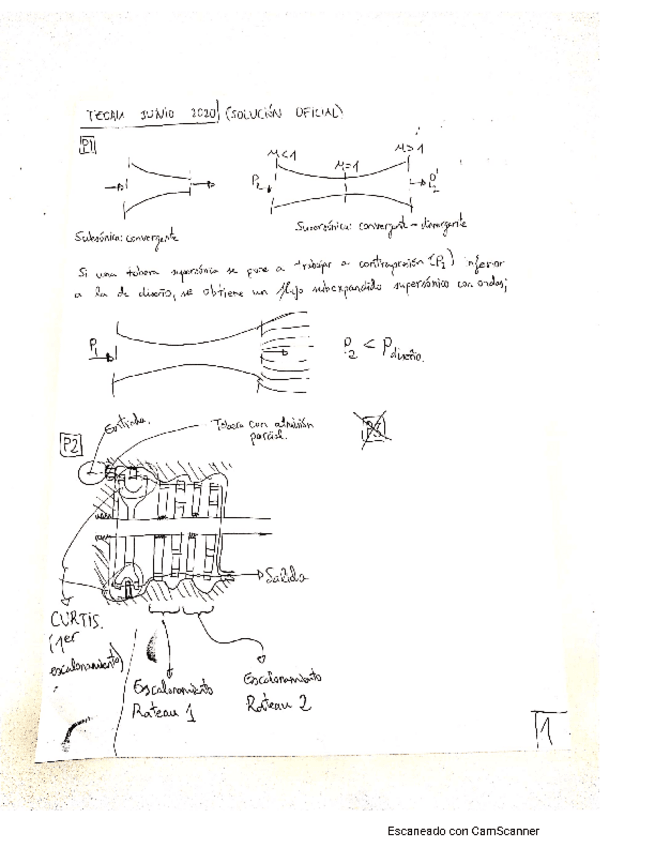 TEORÍA JUNIO 2020 (SOLUCIÓN OFICIAL)
P1
M<1
M=1
M>1
P2
Subsónica: convergente
Supersónica: convergente - divergente
Si una tobera supersónica se pone a trabajar a contrapresión (P2) inferior
a la de diseño, se obtiene un flujo subexpandido supersónico con ondas;
P1
P2 < P diseño.
P2
Tobera con admisión
parcial.
P3
Salida
CURTIS.
(1er
escalonamiento)
Escalonamiento
Rateau 1
Escalonamiento
Rateau 2
1
Escaneado con CamScanner